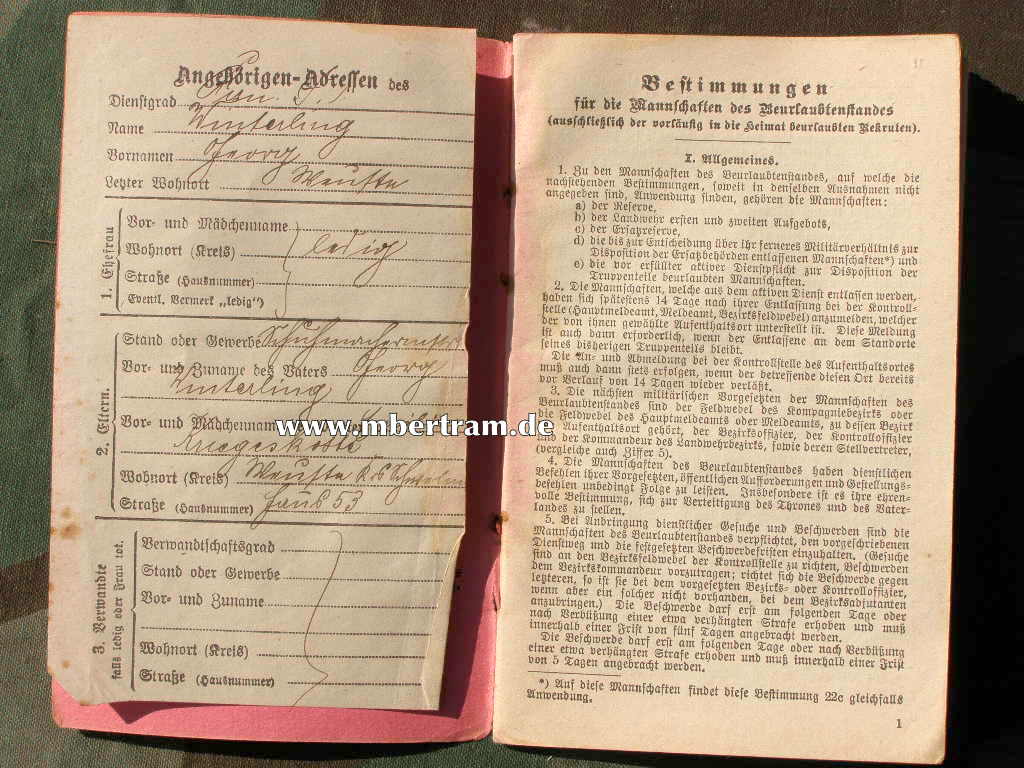 Angehörigen-Adressen des
Dienstgrad
Name Winterling
Vornamen Georg
Letzter Wohnort
1. Ehefrau
Vor- und Mädchenname
Wohnort (Kreis) ledig
Straße (Hausnummer)
Eventl. Vermerk „ledig“)
2. Eltern.
Stand oder Gewerbe
Vor- und Zuname des Vaters Georg
Winterling
Vor- und Mädchenname
Wohnort (Kreis)
Straße (Hausnummer) 53
3. Verwandte
falls ledig oder Frau tot.
Verwandtschaftsgrad
Stand oder Gewerbe
Vor- und Zuname
Wohnort (Kreis)
Straße (Hausnummer)
www.mbertram.de
Bestimmungen
für die Mannschaften des Beurlaubtenstandes
(ausschließlich der vorläufig in die Heimat beurlaubten Rekruten).
I. Allgemeines.
1. Zu den Mannschaften des Beurlaubtenstandes, auf welche die
nachstehenden Bestimmungen, soweit in denselben Ausnahmen nicht
angegeben sind, Anwendung finden, gehören die Mannschaften:
a) der Reserve,
b) der Landwehr ersten und zweiten Aufgebots,
c) der Ersatzreserve,
d) die bis zur Entscheidung über ihr ferneres Militärverhältnis zur
Disposition der Ersatzbehörden entlassenen Mannschaften*) und
e) die vor erfüllter aktiver Dienstpflicht zur Disposition der
Truppenteile beurlaubten Mannschaften.
2. Die Mannschaften, welche aus dem aktiven Dienst entlassen werden,
haben sich spätestens 14 Tage nach ihrer Entlassung bei der Kontroll-
stelle (Hauptmeldeamt, Meldeamt, Bezirksfeldwebel) anzumelden, welcher
der von ihnen gewählte Aufenthaltsort unterstellt ist. Diese Meldung
ist auch dann erforderlich, wenn der Entlassene an dem Standorte
seines bisherigen Truppenteils bleibt.
Die An- und Abmeldung bei der Kontrollstelle des Aufenthaltsortes
muß auch dann stets erfolgen, wenn der betreffende diesen Ort bereits
vor Verlauf von 14 Tagen wieder verläßt.
3. Die nächsten militärischen Vorgesetzten der Mannschaften des
Beurlaubtenstandes sind der Feldwebel des Kompagniebezirks oder
die Feldwebel des Hauptmeldeamts oder Meldeamts, zu dessen Bezirk
der Aufenthaltsort gehört, der Bezirksoffizier, der Kontrolloffizier
und der Kommandeur des Landwehrbezirks, sowie deren Stellvertreter,
(vergleiche auch Ziffer 5).
4. Die Mannschaften des Beurlaubtenstandes haben dienstlichen
Befehlen ihrer Vorgesetzten, öffentlichen Aufforderungen und Gestellungs-
befehlen unbedingt Folge zu leisten. Insbesondere ist es ihre ehren-
volle Bestimmung, sich zur Verteitigung des Thrones und des Vater-
landes zu stellen.
5. Bei Anbringung dienstlicher Gesuche und Beschwerden sind die
Mannschaften des Beurlaubtenstandes verpflichtet, den vorgeschriebenen
Dienstweg und die festgesetzten Beschwerdefristen einzuhalten. (Gesuche
sind an den Bezirksfeldwebel der Kontrollstelle zu richten, Beschwerden
dem Bezirkskommandeur vorzutragen; richtet sich die Beschwerde gegen
letzteren, so ist sie bei dem vorgesetzten Bezirks- oder Kontrolloffizier,
wenn aber ein solcher nicht vorhanden, bei dem Bezirksadjutanten
anzubringen.) Die Beschwerde darf erst am folgenden Tage oder
nach Verbüßung einer etwa verhängten Strafe erhoben und muß
innerhalb einer Frist von fünf Tagen angebracht werden.
Die Beschwerde darf erst am folgenden Tage oder nach Verbüßung
einer etwa verhängten Strafe erhoben und muß innerhalb einer Frist
von 5 Tagen angebracht werden.
*) Auf diese Mannschaften findet diese Bestimmung 22c gleichfalls
Anwendung.
1